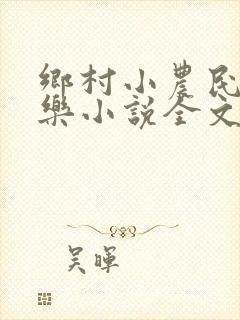 鄉村小農民
樂小說全文
吴暉